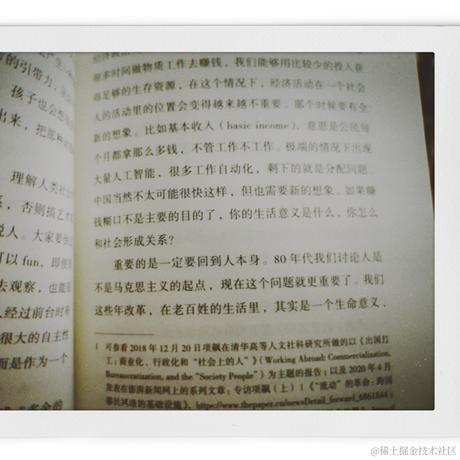 的引带力，
孩子也会想
出来，把那种
理解人类社会
否则搞艺术
说人。大家要
可以 fun，即使
去观察，也能
人经过前台时
很大的自主性
而是作为一个
很多时间做物质工作去赚钱，我们能够用比较少的投入获
得足够的生存资源，在这个情况下，经济活动在一个社会
人的活动里的位置会变得越来越不重要。那个时候要有全
新的想象。比如基本收入（basic income），意思是公民每
个月都拿那么多钱，不管工作不工作。极端的情况下出现
大量人工智能，很多工作自动化，剩下的就是分配问题。
中国当然不太可能很快这样，但也需要新的想象。如果赚
钱糊口不是主要的目的了，你的生活意义是什么，你怎么
和社会形成关系？
重要的是一定要回到人本身。80 年代我们讨论人是
不是马克思主义的起点，现在这个问题就更重要了。我们
这些年改革，在老百姓的生活里，其实是一个生命意义、
1 可参看 2018 年 12 月 20 日项飙在清华高等人文社科研究所做的以《出国打
工：商业化、行政化和“社会上的人”》（Working Abroad: Commercialization,
Bureaucratization, and the “Society People”）为主题的报告；以及 2020 年 4 月
发表在澎湃新闻网上的系列文章：专访项飙（上）|《“流动”的革命：跨国
移民风浪的基础设施》，https://www.thepaper.cn/newsDetail_forward_6861844；
@稀土掘金技术社区